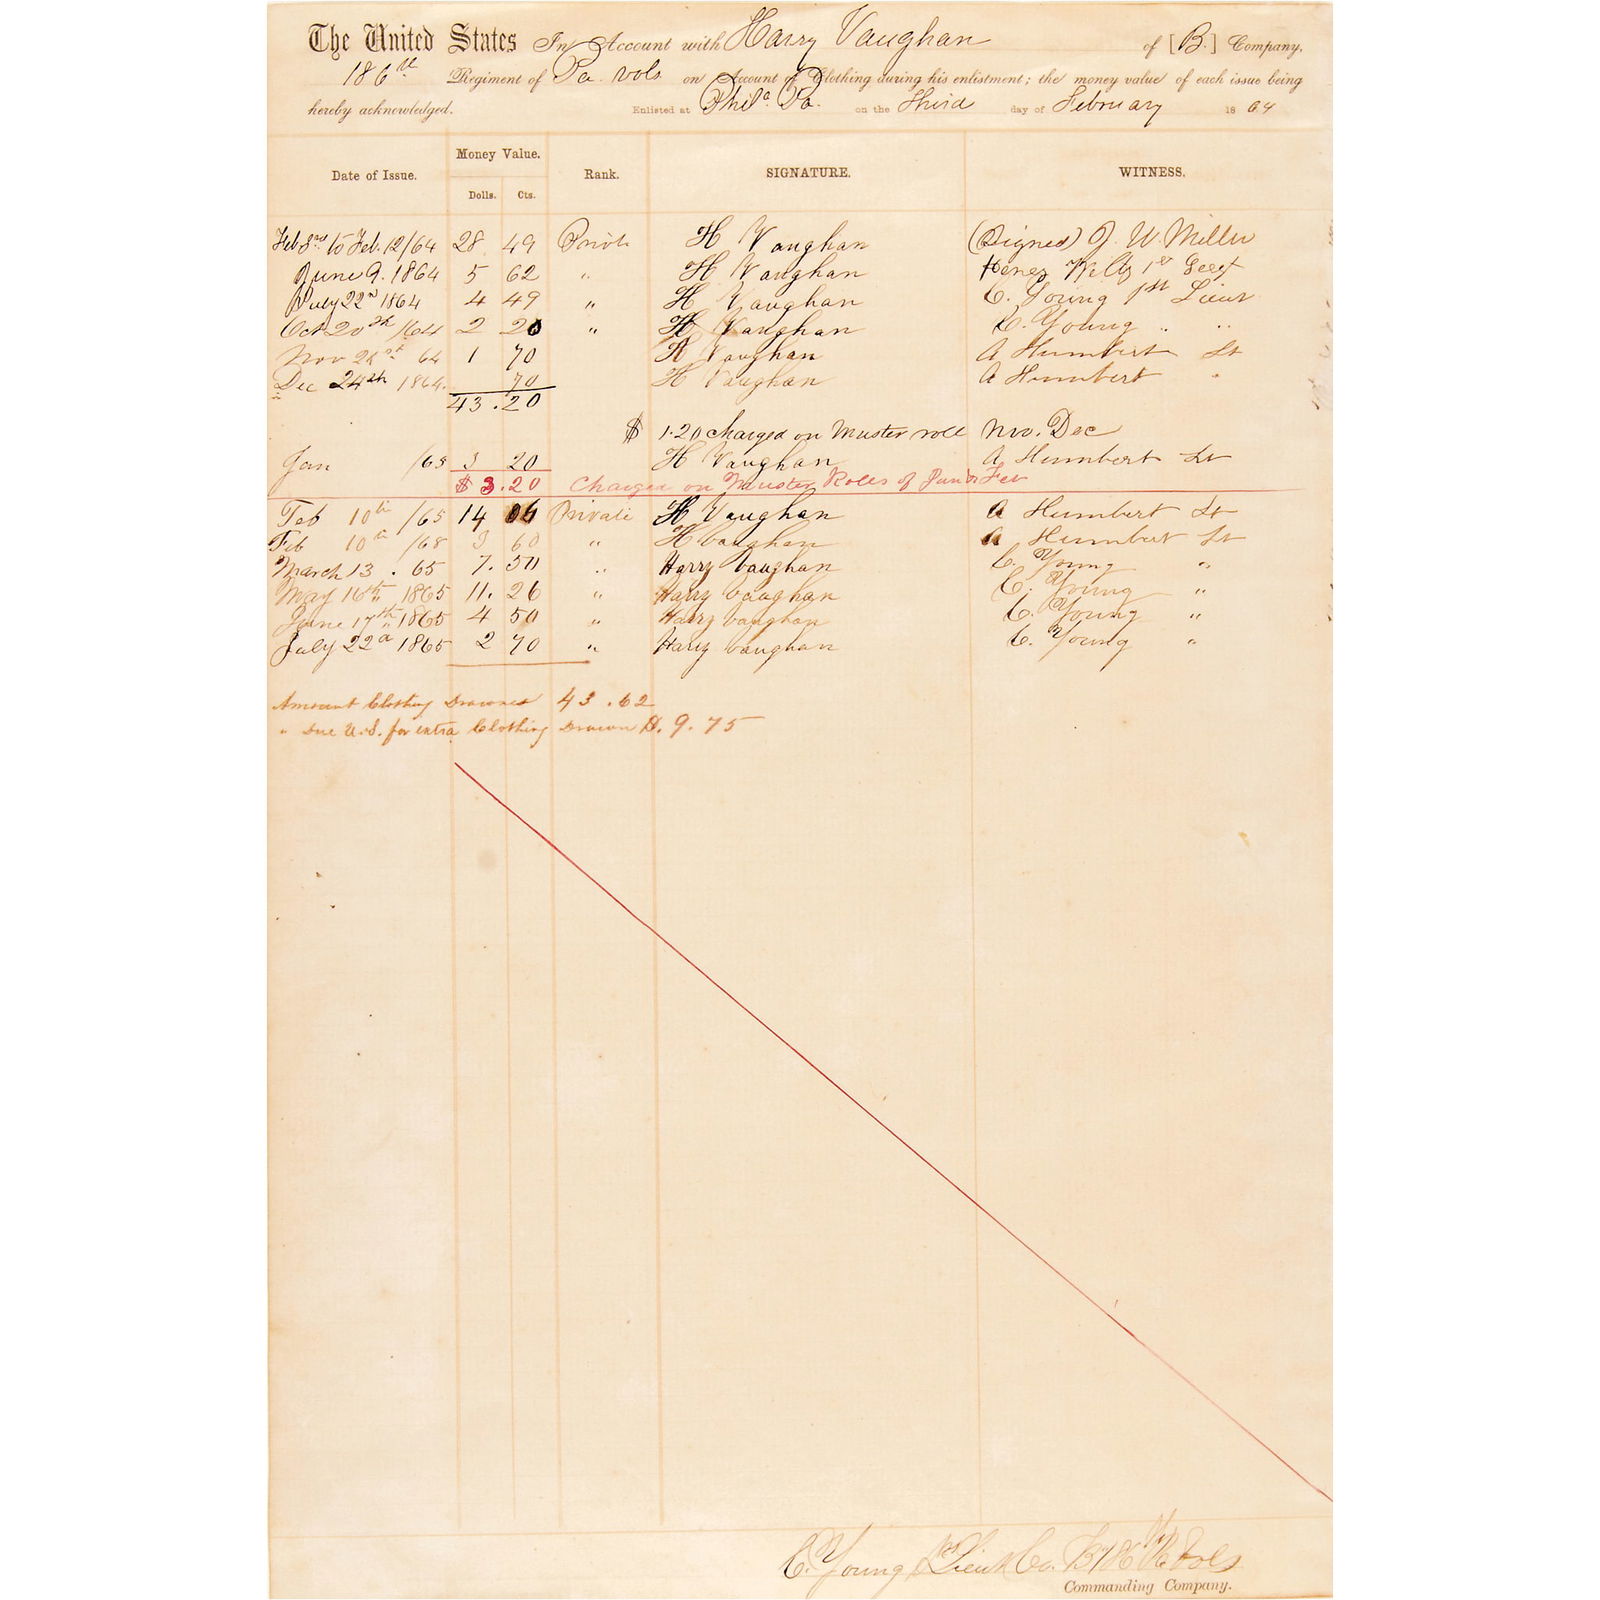 The United States In Account with Harry Vaughan of [B.] Company,
186th Regiment of Pa. vols on Account of Clothing during his enlistment; the money value of each issue being
hereby acknowledged. Enlisted at Phila. Pa. on the Third day of February 1864
Date of Issue. Money Value. Rank. SIGNATURE. WITNESS.
Dolls. Cts.
Feb 3rd to Feb. 12/64 28 49 Privt. H Vaughan (Signed) J. W. Miller
June 9. 1864 5 62 " H Vaughan 1st
July 22nd 1864 4 49 " H Vaughan C. Young 1st Lieut
Oct 20th /64 2 20 " H Vaughan C. Young " "
Nov 64 1 70 H Vaughan A Humbert Lt
Dec 24th 1864. 70 H Vaughan A Humbert "
43.20
$ 1.20 charged on Muster roll Nov. Dec
Jan /65 3 20 H Vaughan A Humbert Lt
$ 3.20 Charged on Muster Roles of Jan & Feb
Feb 10th /65 14 Private H Vaughan A Humbert Lt
Feb 10th /65 3 60 " H Vaughan A Humbert Lt
March 13. 65 7.50 " Harry Vaughan C. Young "
May 16th 1865 11.26 " Harry Vaughan C. Young "
June 17th 1865 4 50 " Harry Vaughan C. Young "
July 22d 1865 2 70 " Harry Vaughan C. Young "
Amount Clothing 43.62
" Due U.S. for extra Clothing Drawn $. 9.75
C. Young 1st Lieut Co. B 186 Pa Vols
Commanding Company.